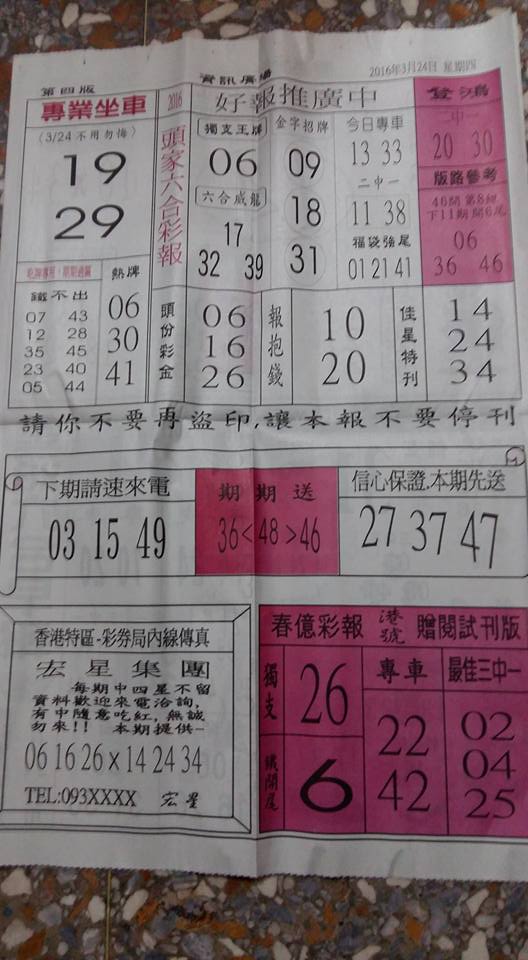 第四版
資訊廣場
2016年3月24日 星期四
專業坐車
(3/24不用勿悔)
19
29
2016
頭家六合彩報
好報推廣中
獨支王牌
06
六合威龍
17
32 39
金字招牌
09
18
31
今日專車
13 33
二中一
11 38
福袋強尾
01 21 41
二中一
20 30
版路參考
46開 第8組
下11期開6尾
06
36 46
鐵不出
07 43
12 28
35 45
23 40
05 44
熱牌
06
30
41
頭份彩金
06
16
26
報抱錢
10
20
佳星特刊
14
24
34
請你不要再盜印,讓本報不要停刊
下期請速來電
03 15 49
期期送
36<48>46
信心保證.本期先送
27 37 47
香港特區-彩券局內線傳真
宏星集團
每期中四星不留
資料歡迎來電洽詢,
有中隨意吃紅,無誠
勿來!! 本期提供-
06 16 26×14 24 34
TEL:093XXXX 宏星
春億彩報 港號 贈閱試刊版
獨支
26
鐵開尾
6
專車
22
42
最佳三中一
02
04
25